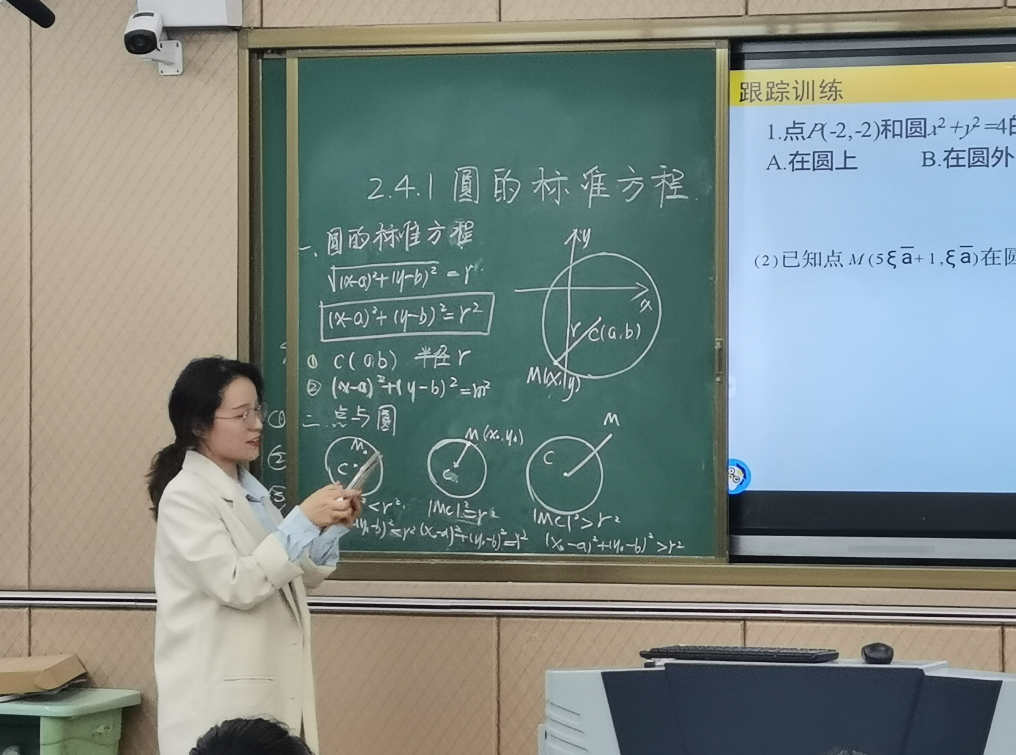 2.4.1 圆的标准方程
一、圆的标准方程
√(x-a)²+(y-b)² = r
(x-a)²+(y-b)²=r²
① C(a,b) 半径r
② (x-a)²+(y-b)²=m²
二、点与圆
y
x
r
C(a,b)
M(x,y)
①
②
③
M₀
C
M(x₀,y₀)
C
M
C
²<r²
|MC|²=r²
|MC|²>r²
(y₀-b)²=r²
(x₀-a)²+(y₀-b)²=r²
(x₀-a)²+(y₀-b)²>r²
跟踪训练
1.点P(-2,-2)和圆x²+y²=4的
A.在圆上 B.在圆外
(2)已知点M(5ξa̅+1,ξa̅)在圆